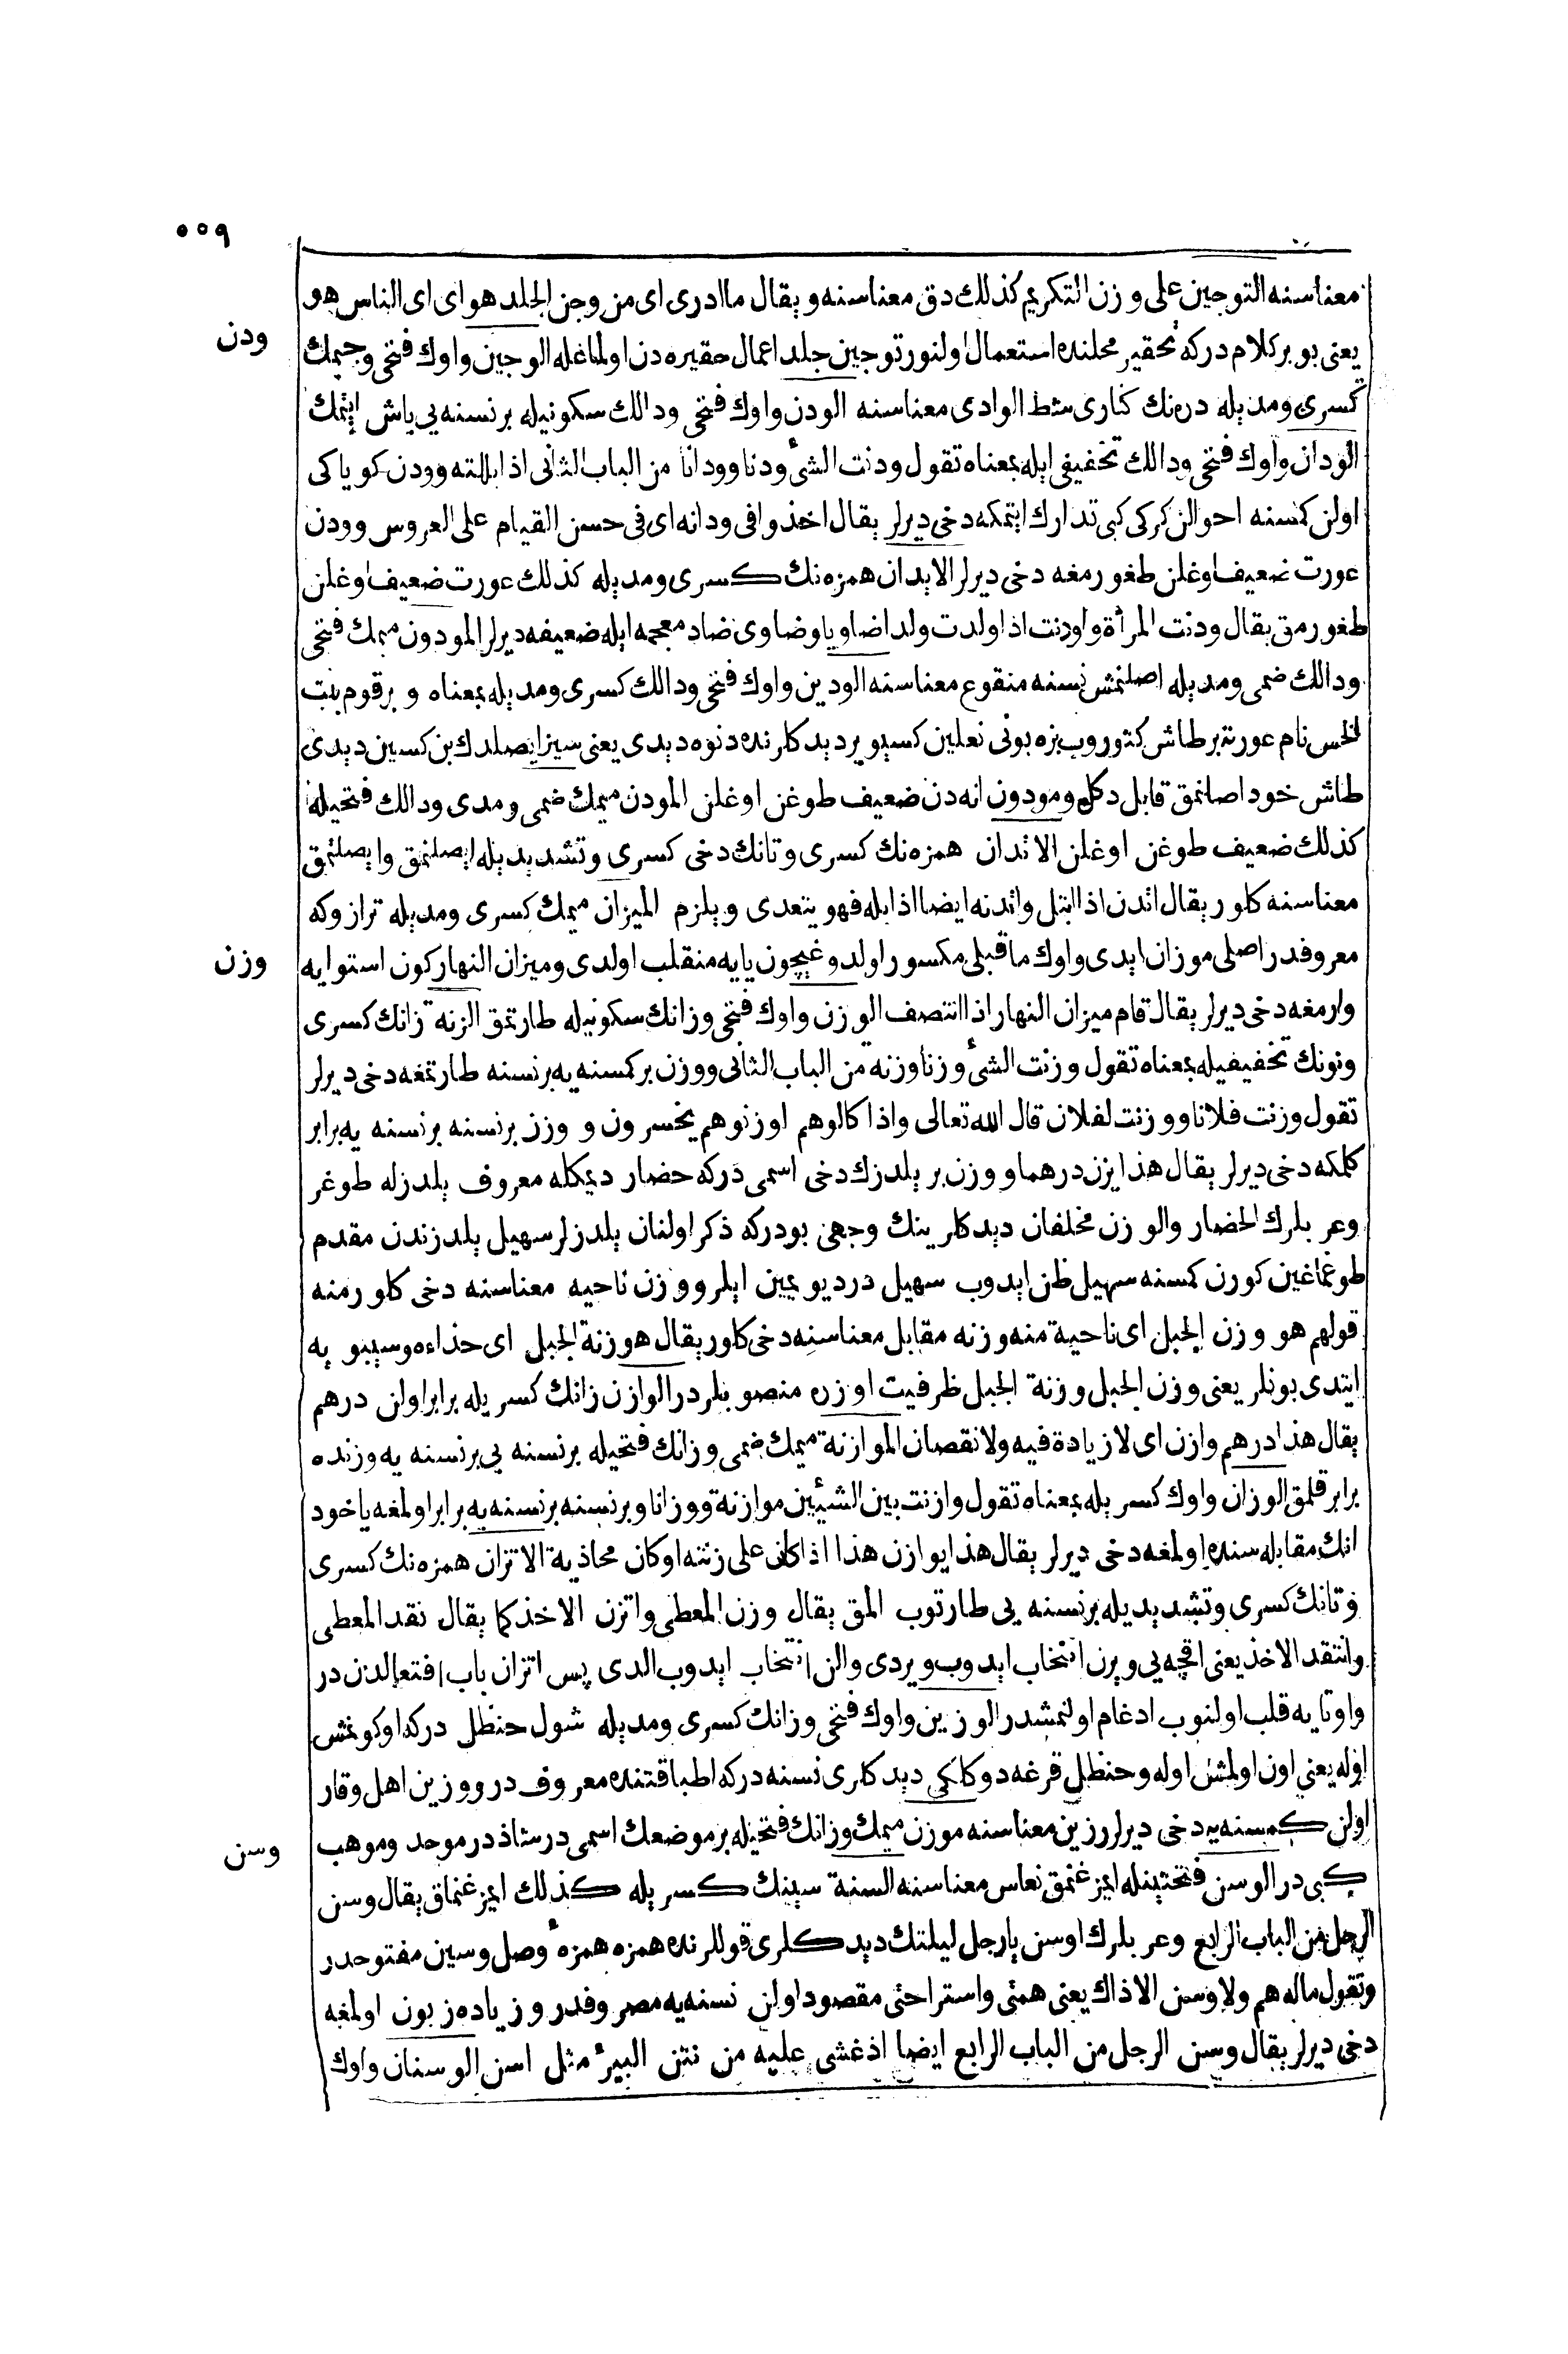 ٥٥٩
معناسنه التوجين على وزن التكريم كذلك دق معناسنه ويقال ماادرى اى من وجن الجلد هو اى اى الناس هو
ودن
يعنى بو بر كلام دركه تحقير محلنده استعمال اولنور توجين جلد اعمال حقيره دن اولماغله الوجين واوك فتحى وجيمك
كسرى ومديله دره نك كنارى شط الوادى معناسنه الودن واوك فتحى ودالك سكونيله بر نسنه يى ياش ايتمك
الودان واوك فتحى ودالك تخفيفى ايله بمعناه تقول ودنت الشئ ودنا وودانا من الباب الثانى اذا بللته وودن كوياكى
اولن كمسنه احوالن كركى كبى تدارك ايتمكه دخى ديرلر يقال اخذوا فى ودانه اى فى حسن القيام على العروس وودن
عورت ضعيف اوغلن طغورمغه دخى ديرلر الايدان همزه نك كسرى ومديله كذلك عورت ضعيف اوغلن
طغورمق يقال ودنت المرأة واودنت اذا ولدت ولدا ضاويا وضاوى ضاد معجمه ايله ضعيفه ديرلر المودون ميمك فتحى
ودالك ضمى ومديله اصلنمش نسنه منقوع معناسنه الودين واوك فتحى ودالك كسرى ومديله بمعناه و بر قوم بنت
الخس نام عورته بر طاش كتوروب بزه بونى نعلين كسيوير ديدكلرنده دنوه ديدى يعنى سيز ايصلدك بن كسين ديدى
طاش خود اصلنمق قابل دكل ومودون انه دن ضعيف طوغن اوغلن المودن ميمك ضمى ومدى ودالك فتحيله
كذلك ضعيف طوغن اوغلن الاتدان همزه نك كسرى وتانك دخى كسرى وتشديديله ايصلنمق وايصلتمق
معناسنه كلور يقال اتدن اذا ابتل واتدنه ايضا اذا بله فهو يتعدى ويلزم الميزان ميمك كسرى ومديله ترازوكه
وزن
معروفدر اصلى موزان ايدى واوك ماقبلى مكسور اولدوغيچون يايه منقلب اولدى وميزان النهار كون استوايه
وارمغه دخى ديرلر يقال قام ميزان النهار اذا انتصف الوزن واوك فتحى وزانك سكونيله طارتمق الزنة زانك كسرى
ونونك تخفيفيله بمعناه تقول وزنت الشئ وزنا وزنة من الباب الثانى ووزن بر كمسنه يه بر نسنه طارتمغه دخى ديرلر
تقول وزنت فلانا ووزنت لفلان قال الله تعالى واذا كالوهم اوزنوهم يخسرون و وزن بر نسنه بر نسنه يه برابر
كلمكه دخى ديرلر يقال هذا يزن درهما ووزن بر يلدزك دخى اسمى دركه حضار ديمكله معروف يلدزله طوغر
وعربلرك الحضار والوزن مخلفان ديدكلرينك وجهى بودركه ذكر اولنان يلدزلر سهيل يلدزندن مقدم
طوغماغين كورن كمسنه سهيل ظن ايدوب سهيل در ديو يمين ايلر ووزن ناحيه معناسنه دخى كلور منه
قولهم هو وزن الجبل اى ناحية منه وزنه مقابل معناسنه دخى كلور يقال هو زنة الجبل اى حذاءه وسيبويه
ايتدى بونلر يعنى وزن الجبل وزنة الجبل ظرفيت اوزره منصوبلردر الوازن زانك كسريله برابر اولن درهم
يقال هذا درهم وازن اى لا زيادة فيه ولا نقصان الموازنة ميمك ضمى وزانك فتحيله بر نسنه يى بر نسنه يه وزنده
برابر قلمق الوزان واوك كسريله بمعناه تقول وازنت بين الشيئين موازنة ووزانا وبر نسنه بر نسنه يه برابر اولمغه ياخود
انك مقابله سنده اولمغه دخى ديرلر يقال هذا يوازن هذا اذا كان على زنته او كان محاذيه الاتزان همزه نك كسرى
وتانك كسرى وتشديديله بر نسنه يى طارتوب المق يقال وزن المعطى واتزن الاخذ كما يقال نقد المعطى
وانتقد الاخذ يعنى اقچه يى ويرن انتخاب ايدوب ويردى والن انتخاب ايدوب الدى پس اتزان باب افتعالدن در
واو تايه قلب اولنوب ادغام اولنمشدر الوزين واوك فتحى وزانك كسرى ومديله شول حنظل دركه اوكونمش
اوله يعنى اون اولمش اوله وحنظل قرغه دوكلكى ديدكلرى نسنه دركه اطبا قتنده معروف در ووزين اهل وقار
وسن
اولن كمسنه يه دخى ديرلر رزين معناسنه موزن ميمك وزانك فتحيله بر موضعك اسمى در شاذدر موحد وموهب
كبى در الوسن فتحتينله ايمزغنمق نعاس معناسنه السنة سينك كسريله كذلك ايمزغنماق يقال وسن
الرجل من الباب الرابع وعربلرك اوسن يا رجل ليلتك ديدكلرى قوللرنده همزه همزهٔ وصل وسين مفتوحدر
وتقول ماله هم ولا وسن الا ذاك يعنى همتى واستراحتى مقصود اولن نسنه يه مصروفدر و زياده زبون اولمغه
دخى ديرلر يقال وسن الرجل من الباب الرابع ايضا اذ غشى عليه من نتن البيرٔ مثل اسن الوسنان واوك